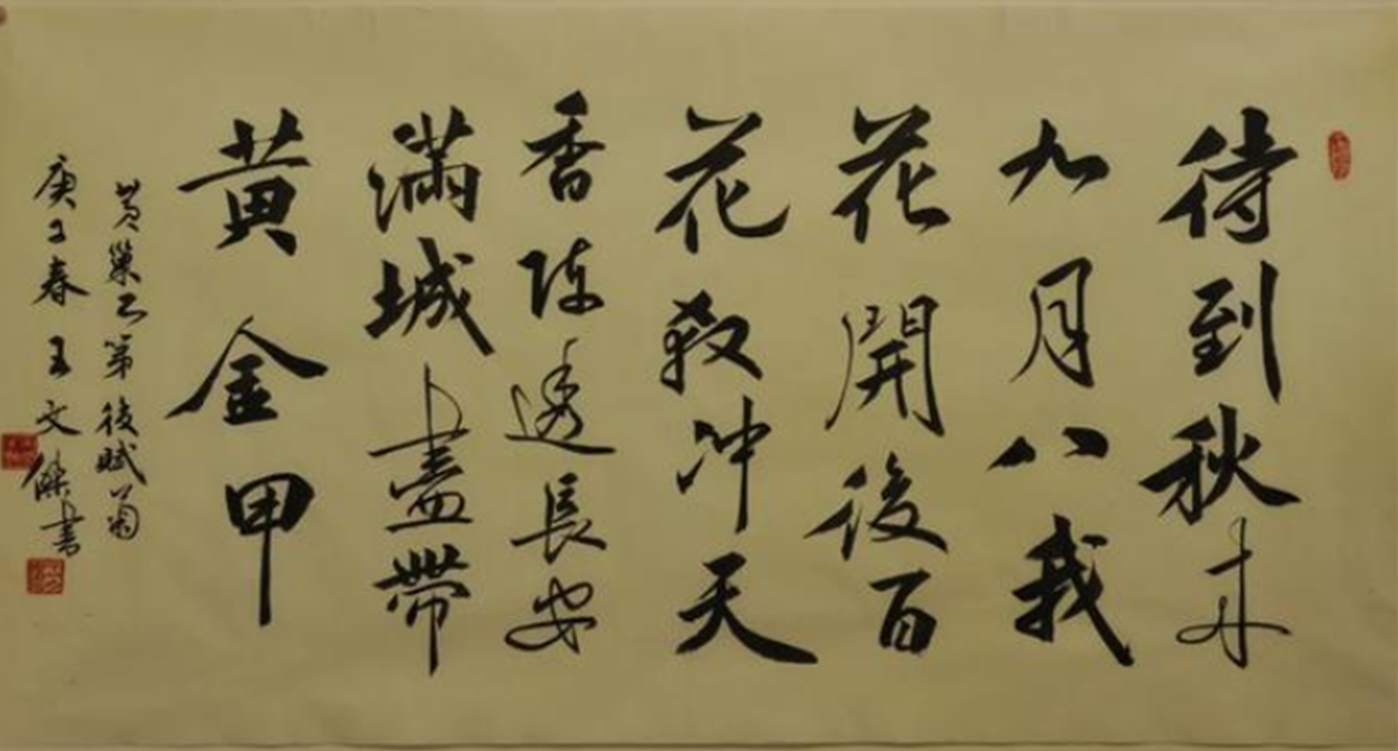 待到秋来
九月八我
花開後百
花殺冲天
香陣透長安
滿城盡帶
黄金甲
黄巢不第後賦菊
庚子春王文傑書